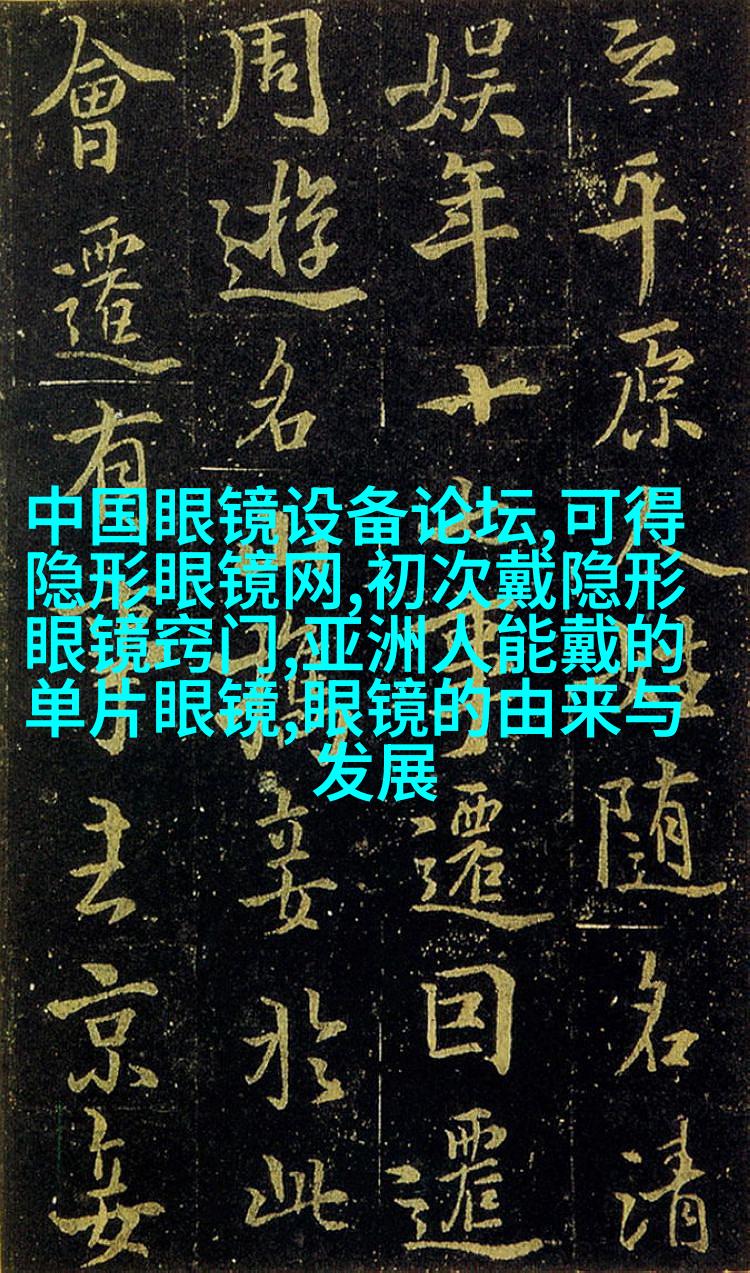 中国眼镜设备论坛,可得
隐形眼镜网,初次戴隐形
眼镜窍门,亚洲人能戴的
单片眼镜,眼镜的由来与
发展
之平原人姓随名清
娱年十七事遷回遷
周遊名山妾於此
會遷有京妾